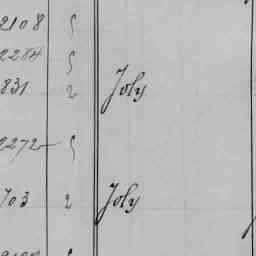 2108 ς
2284 ς
831 2 Joly
2272 ς
703 2 Joly